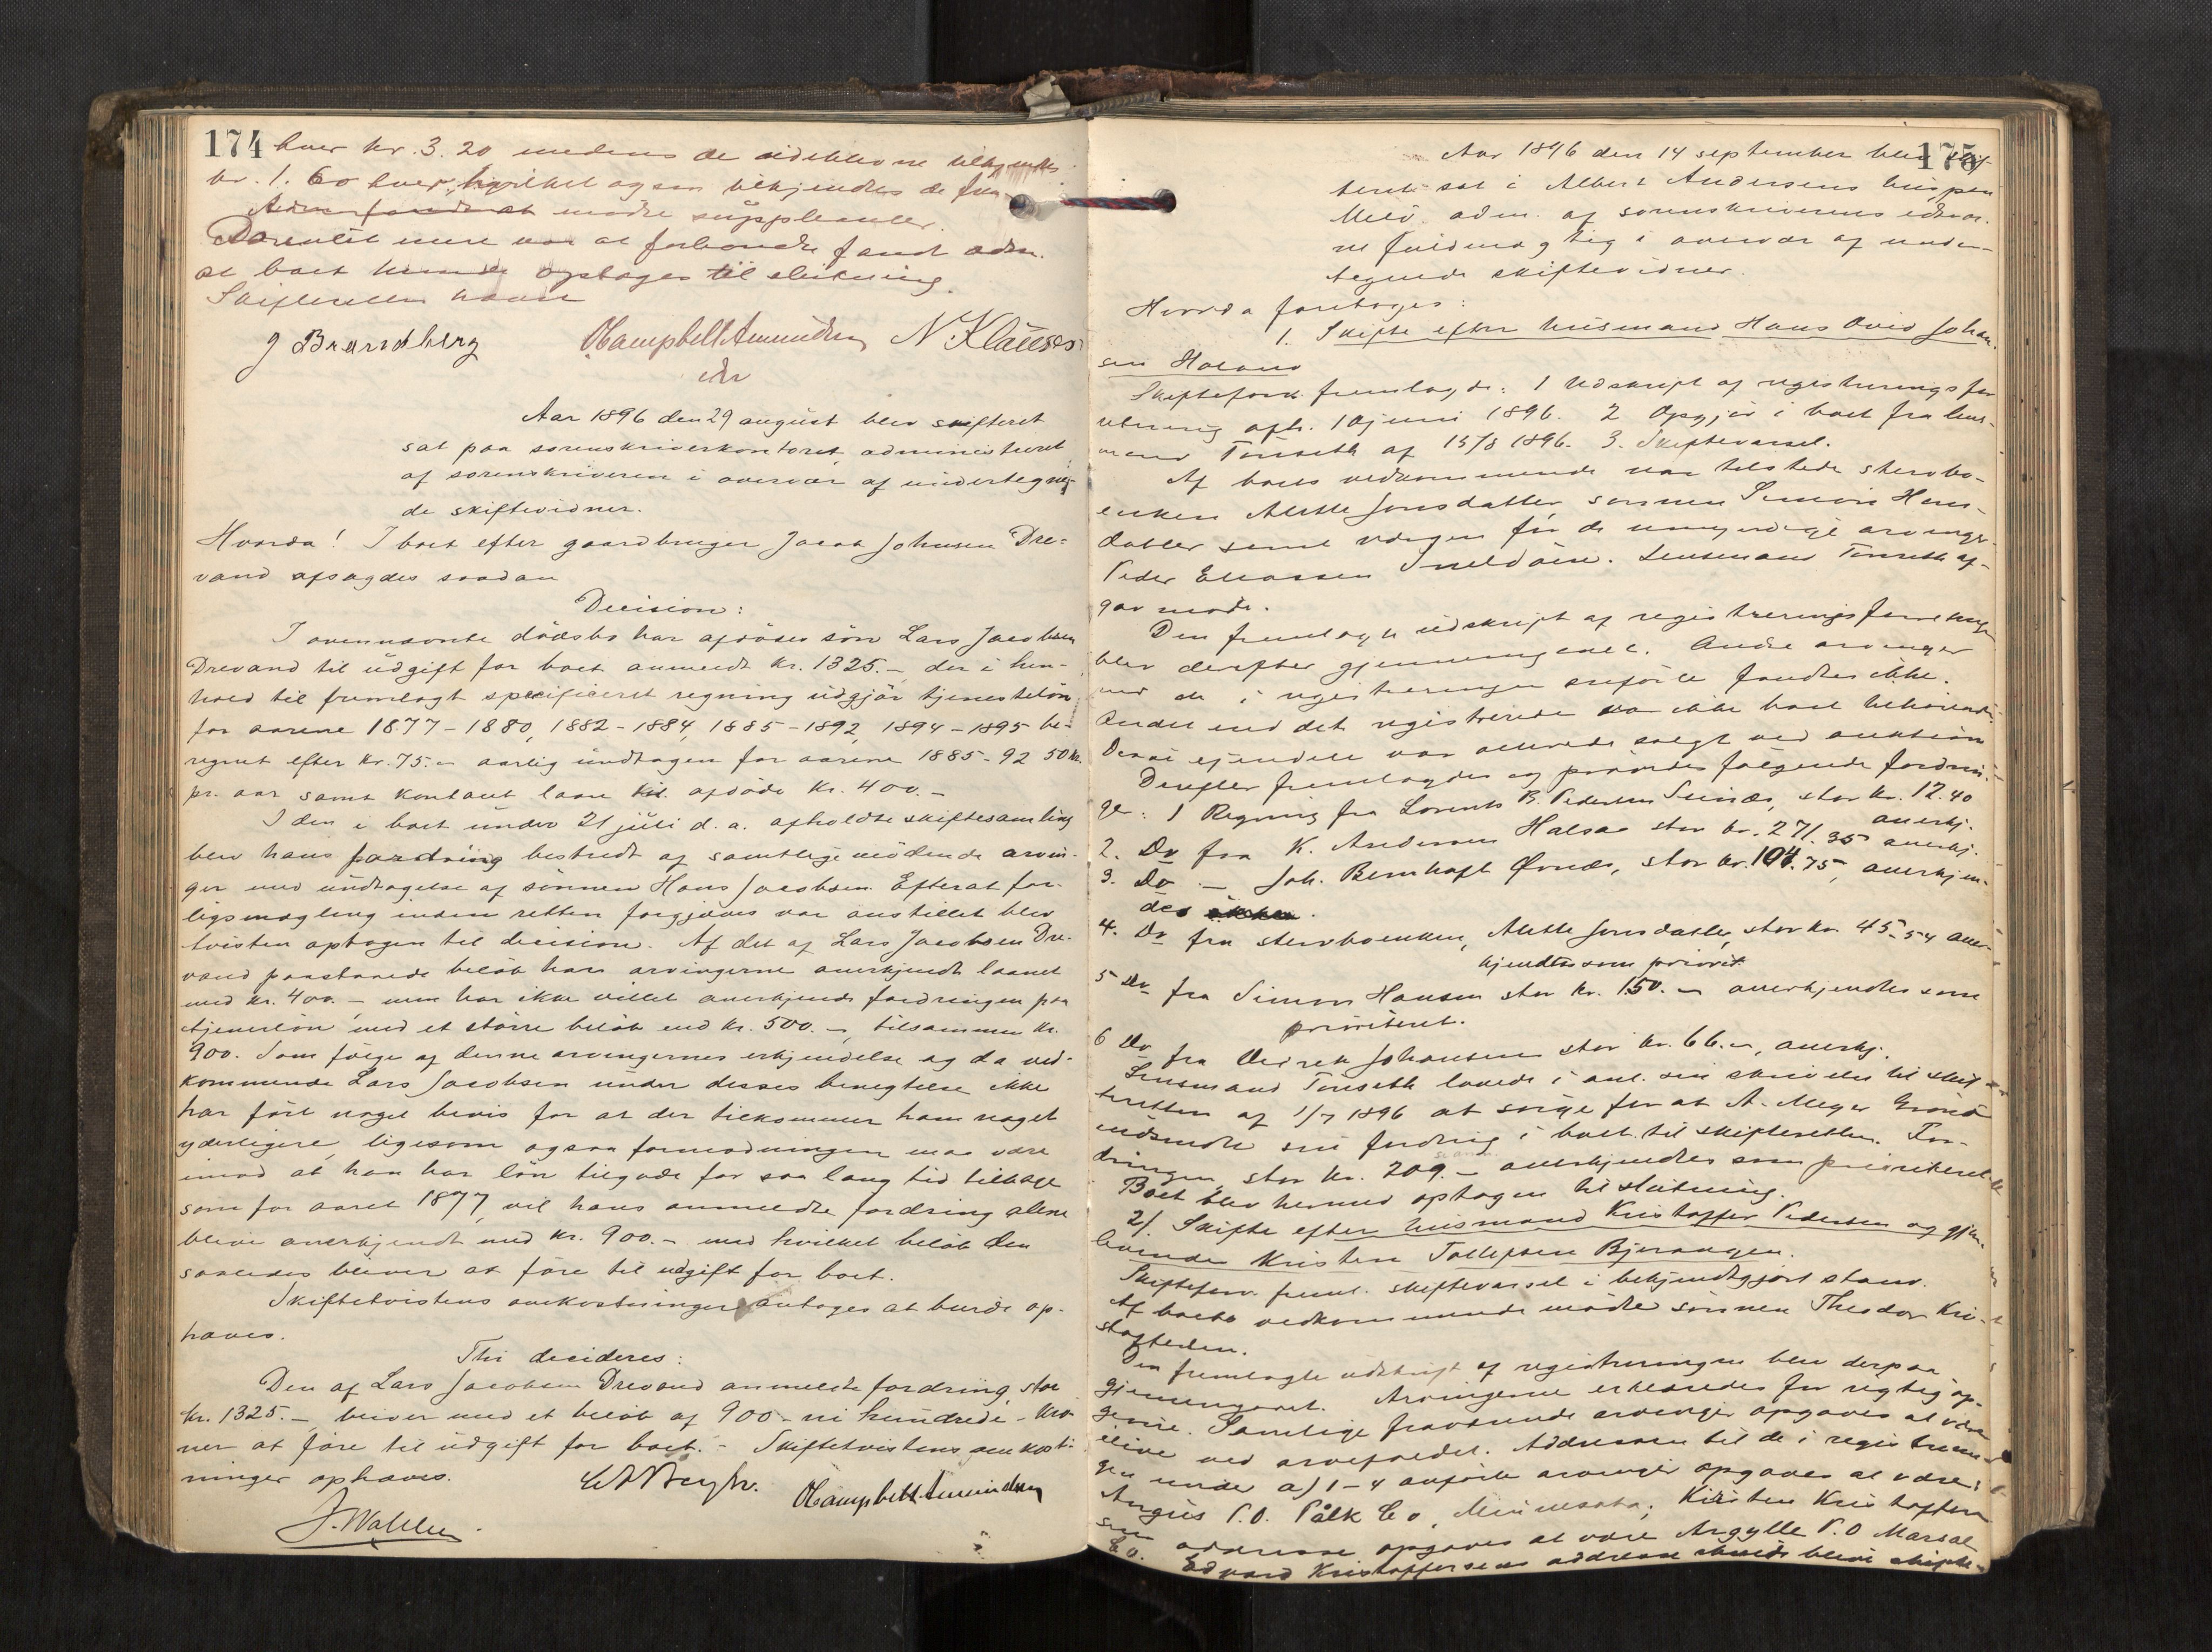 174
hver kr. 3.20 medens de sidstevne tilkjendtes
kr. 1.60 hver, hvilket ogsaa tilkjendtes de frem-
mødte suppleanter.
Da intet mere var at forhandle fandt adm.
at boet kunde optages til slutning.
Skifteretten hævet
J Brandsberg OCampbellAmundsen N Klausen
Aar 1896 den 29 august blev skifteret
sat paa sorenskriverkontoret administreret
af sorenskriveren i overvær af undertegne-
de skiftevidner.
Hvorda! I boet efter gaardbruger Jacob Johnsen Dre-
vand afsagdes saadan
Decision:
I ovennævnte dødsbo har afdødes søn Lars Jacobsen
Drevand til udgift for boet anmeldt kr. 1325.- der i hen-
hold til fremlagt specificeret regning udgjør tjenesteløn
for aarene 1877-1880, 1882-1884, 1885-1892, 1894-1895 be-
regnet efter kr. 75.- aarlig undtagen for aarene 1885-92 50 kr.
pr. aar samt kontant laan til afdøde kr. 400.-
I den i boet under 21 juli d. a. afholdte skiftesamling
blev hans fordring bestredt af samtlige mødende arvin-
ger med undtagelse af sønnen Hans Jacobsen. Efterat for-
ligsmægling inden retten forgjæves var anstillet blev
tvisten optagen til decision. Af det af Lars Jacobsen Dre-
vand paastaaede beløb har arvingerne anerkjendt laanet
med kr. 400.- men har ikke villet anerkjende fordringen paa
tjenerløn med et større beløb end kr. 500.-, tilsammen kr.
900. Som følge af denne arvingernes erkjendelse og da ved-
kommende Lars Jacobsen under disses benegtelse ikke
har ført noget bevis for at der tilkommer ham noget
yderligere, ligesom ogsaa formodningen maa være
imod at han har løn tilgode for saa lang tid tilbage
som for aaret 1877, vil hans anmeldte fordring alene
blive anerkjendt med kr. 900.- med hvilket beløb den
saaledes bliver at føre til udgift for boet.
Skiftetvistens omkostninger antages at burde op-
hæves.
Thi decideres:
Den af Lars Jacobsen Drevand anmeldte fordring, stor
kr. 1325.-, bliver med et beløb af 900 - ni hundrede - kro-
ner at føre til udgift for boet. - Skiftetvistens omkost-
ninger ophæves.
OCampbellAmundsen
J. Wahlen
175
Aar 1896 den 14 september blev skif-
teret sat i Albert Andersens hus paa
Melø adm. af sorenskriverens edsvor-
ne fuldmægtig i overvær af under-
tegnede skiftevidner.
Hvorda foretoges:
1. Skifte efter husmand Hans Ovid Johan-
sen Haland
Skifteforv. fremlagde: 1 Udskrift af registreringsfor-
retning afh. 10 juni 1896. 2 Opgjør i boet fra lens-
mand Tønseth af 15/8 1896. 3. Skiftevarsel.
Af boets vedkommende var tilstede stervbo-
enken Alette Jonsdatter, sønnen Simon Hans-
datter samt værgen for de umyndige arvinger
Peder Eliassen Sneldøien. Lensmand Tønseth af-
gav møde.
Den fremlagte udskrift af registreringsforretningen
blev derefter gjennemgaaet. Andre arvinger
end de i registreringen anførte fandtes ikke.
Andet end det registrerede var ikke boet tilhørende.
Boets eiendele var allerede solgt ved auktion
Derefter fremlagdes og prøvedes følgende fordrin-
ger: 1 Regning fra Lorents B. Pedersen Sundø, stor kr. 12.40
anerkj.
2. Do fra K. Andersen Halsaa stor kr. 271.35 anerkj.
3. Do - Joh. Bernhoft Ørnæs, stor kr. 104.75, anerkjen-
des
4. Do fra stervboenken, Alette Jonsdatter, stor kr. 45.54 aner-
kjendtes som priorit.
5 Do fra Simon Hansen stor kr. 150.- anerkjendtes som
prioriteret.
6 Do fra Didrik Johansen stor kr. 66.-, anerkj.
Lensmand Tønseth lovede i anl. sin skrivelse til skif-
teretten af 1/7 1896 at sørge for at A. Meyer Grønø
indsendte sin fordring i boet til skifteretten. For-
dringen, stor kr. 209.- anerkjendtes som prioriteret
Boet blev hermed optagen til slutning.
2). Skifte efter husmand Kristoffer Pedersen og gjen-
levende Kristen Tollefsen Bjerangen.
Skifteforv. freml. skiftevarsel i bekjendtgjort stand.
Af boets vedkommende mødte sønnen Theodor Kri-
stoffersen.
Den fremlagte udskrift af registreringen blev derpaa
gjennemgaaet. Arvingerne erklæredes for rigtig op-
givne. Samtlige fraværende arvinger opgaves at være
ilive ved arvefaldet. Addressen til de i registrerin-
gen under a) 1-4 anførte arvinger opgaves at være:
Angus P.O. Pålk Co, Minnesota, Kirsten Kristoffer-
sens addresse opgaves at være Argylle P.O Marsal
Co. Edvard Kristoffersens addresse skulde blive skifte-